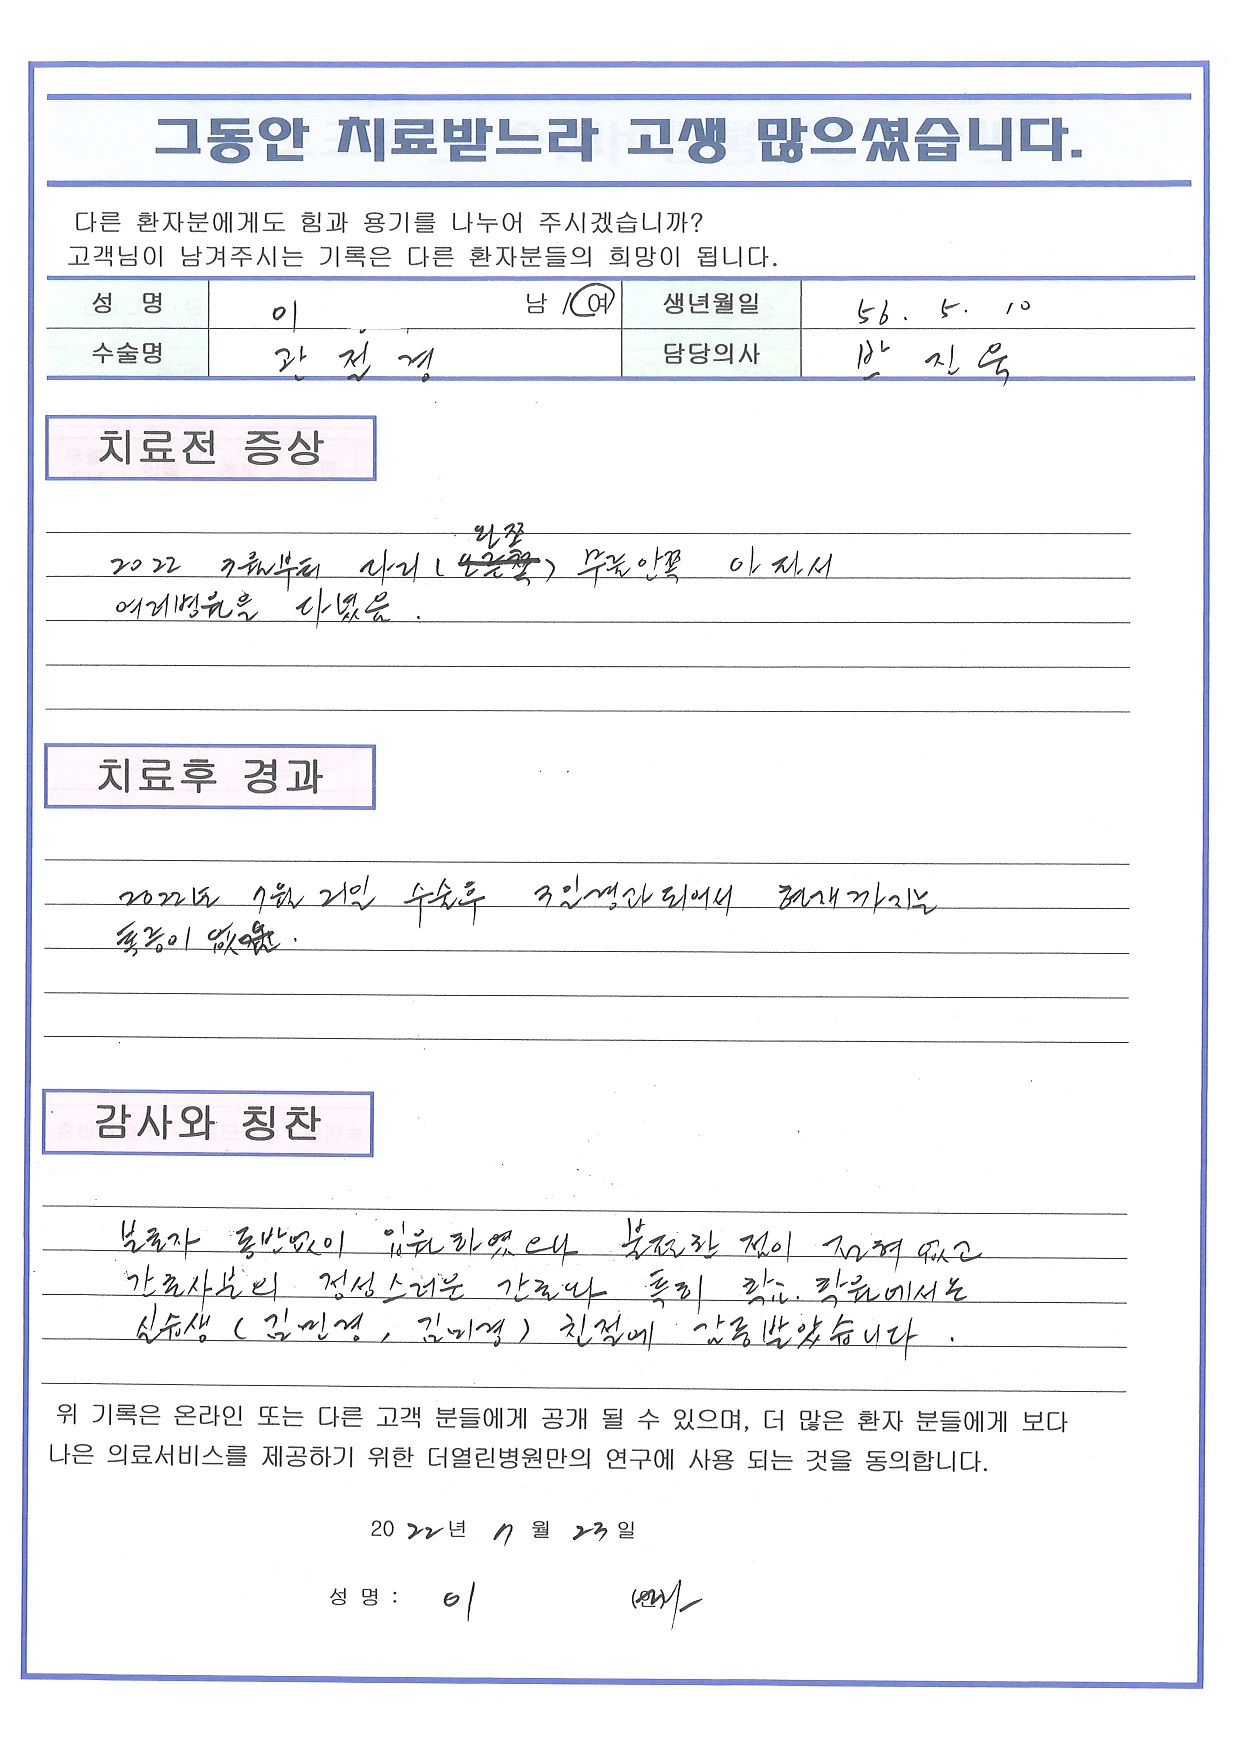 그동안 치료받느라 고생 많으셨습니다.
다른 환자분에게도 힘과 용기를 나누어 주시겠습니까?
고객님이 남겨주시는 기록은 다른 환자분들의 희망이 됩니다.
성 명 이 남 / 여 생년월일 56. 5. 10
수술명 관절경 담당의사 박진욱
치료전 증상
왼쪽
2022 3월부터 다리 ( ) 무릎안쪽 아파서
여러병원을 다녔음.
치료후 경과
2022년 7월 21일 수술후 3일경과되어서 현재까지는
통증이
감사와 칭찬
보호자 동반없이 입원하였으나 불편한 점이 전혀 없고
간호사분의 정성스러운 간호나 특히
실습생 (김민경, 김미경) 친절에 감동받았습니다.
위 기록은 온라인 또는 다른 고객 분들에게 공개 될 수 있으며, 더 많은 환자 분들에게 보다
나은 의료서비스를 제공하기 위한 더열린병원만의 연구에 사용 되는 것을 동의합니다.
2022년 7월 23일
성 명 : 이 (인)